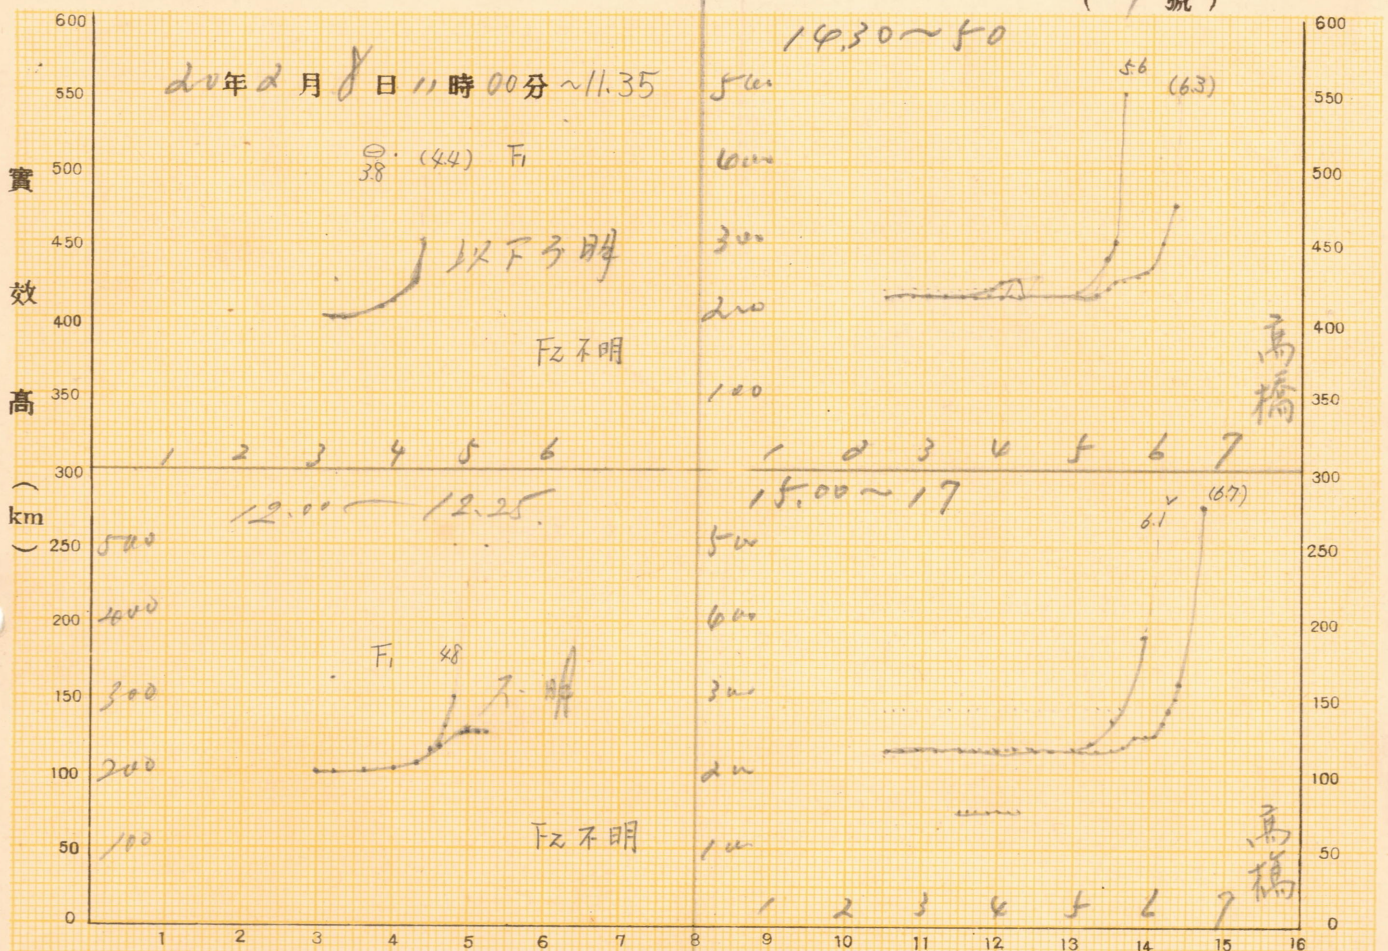 ( 號 )
600
550
500
450
400
350
300
250
200
150
100
50
0
實效高(km)
20年2月8日11時00分~11.35
3.8 (4.4) F1
以下不明
F2 不明
1 2 3 4 5 6
12.00 — 12.25
500
400
300
200
100
F1 4.8
不明
F2 不明
14.30~50
500
400
300
200
100
5.6 (6.3)
高橋
1 2 3 4 5 6 7
15.00~17
500
400
300
200
100
6.1 (6.7)
高橋
1 2 3 4 5 6 7
600
550
500
450
400
350
300
250
200
150
100
50
0
1 2 3 4 5 6 7 8 9 10 11 12 13 14 15 16